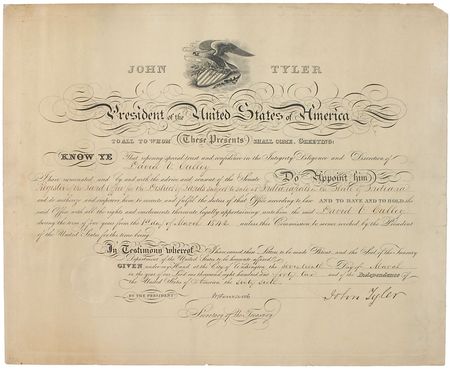 JOHN TYLER
President of the United States of America
TO ALL TO WHOM These Presents SHALL COME, GREETING:
KNOW YE That reposing special trust and confidence in the Integrity Diligence and Discretion of
David V. Culley
I have nominated, and by and with the advice and consent of the Senate Do Appoint him
Register of the Land Office for the District of Lands subject to sale at Indianapolis in the State of Indiana
and do authorize and empower him to execute and fulfil the duties of that Office according to law AND TO HAVE AND TO HOLD the
said Office with all the rights and emoluments thereunto legally appertaining unto him the said David V. Culley
during the term of four years from the day of March 1842 unless this Commission be sooner revoked by the President
of the United States for the time being.
In Testimony whereof I have caused these Letters to be made Patent, and the Seal of the Treasury
Department of the United States to be hereunto affixed
GIVEN under my Hand at the City of Washington the Day of March
in the year of our Lord one thousand eight hundred and forty two and of the Independence of
the United States of America the sixty sixth
BY THE PRESIDENT
John Tyler
Secretary of the Treasury